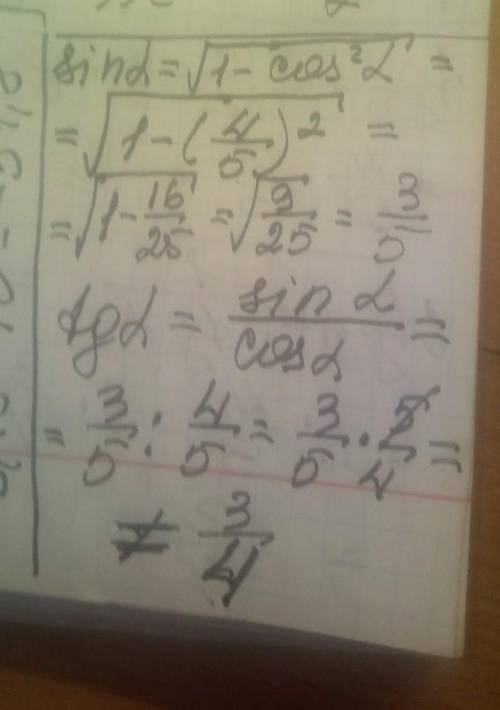 sin α = √(1 - cos² α) =
= √(1 - (4/5)²) =
= √(1 - 16/25) = √(9/25) = 3/5
tg α = sin α / cos α =
= 3/5 : 4/5 = 3/5 · 5/4 =
= 3/4